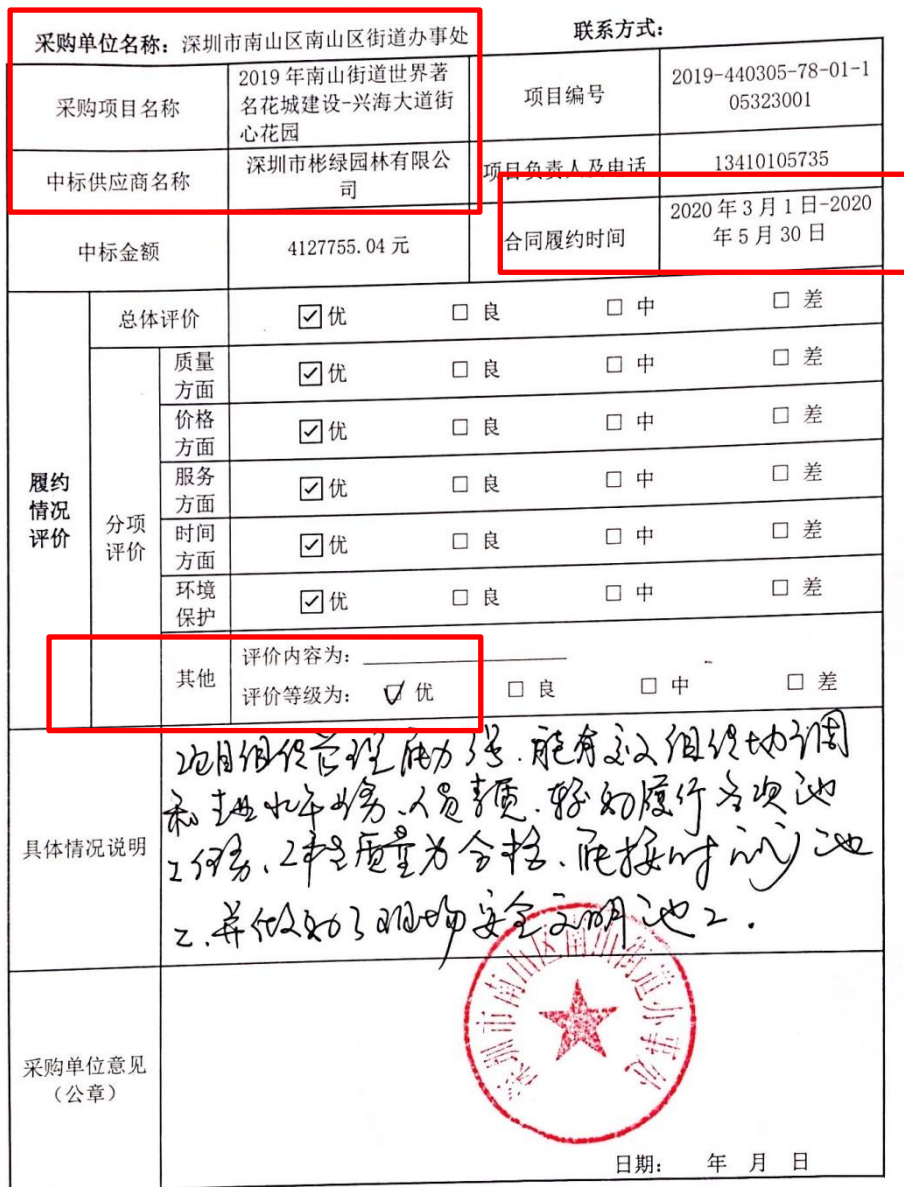 采购单位名称：深圳市南山区南山区街道办事处 联系方式：
采购项目名称 2019年南山街道世界著名花城建设-兴海大道街心花园 项目编号 2019-440305-78-01-105323001
中标供应商名称 深圳市彬绿园林有限公司 项目负责人及电话 13410105735
中标金额 4127755.04元 合同履约时间 2020年3月1日-2020年5月30日
履约情况评价
总体评价 ☑优 □良 □中 □差
分项评价
质量方面 ☑优 □良 □中 □差
价格方面 ☑优 □良 □中 □差
服务方面 ☑优 □良 □中 □差
时间方面 ☑优 □良 □中 □差
环境保护 ☑优 □良 □中 □差
其他 评价内容为：
评价等级为： ☑优 □良 □中 □差
具体情况说明
项目组织管理能力强、能有效组织协调
和 人员 、较好履行各项施
工任务、工程质量为合格、能按时 施
工、并做好了现场安全文明施工.
采购单位意见（公章）
深圳市南山区南山街道办事处
日期： 年 月 日